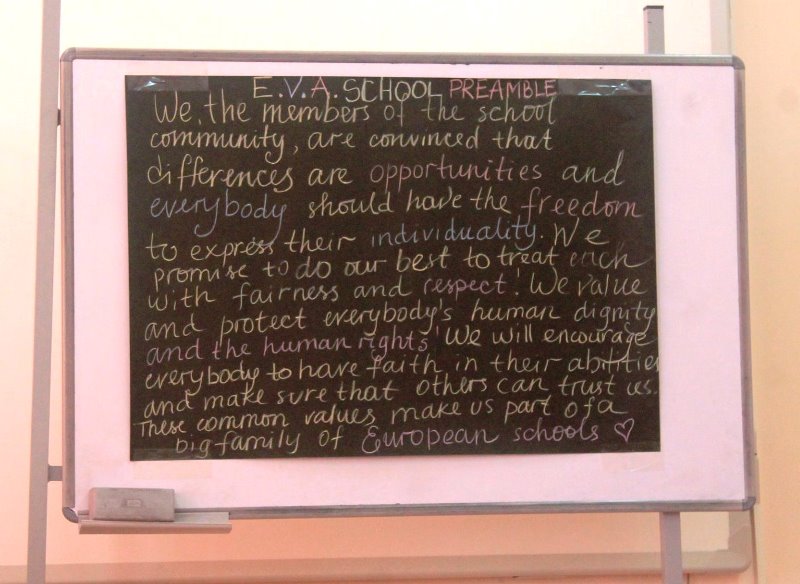 E.V.A. SCHOOL PREAMBLE
We, the members of the school
community, are convinced that
differences are opportunities and
everybody should have the freedom
to express their individuality. We
promise to do our best to treat each
with fairness and respect! We value
and protect everybody's human dignity
and the human rights! We will encourage
everybody to have faith in their abilities
and make sure that others can trust us.
These common values make us part of a
big family of European schools ♡